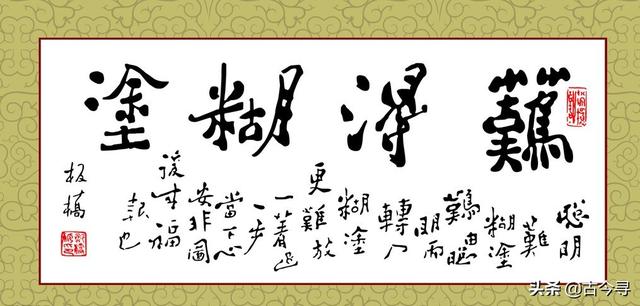 難得糊塗
聰明
難
糊塗
難由聰
明而
轉入
糊塗
更難放
一着退
一步
當下心
安非圖
後來福
報也
板橋
头条 @古今寻